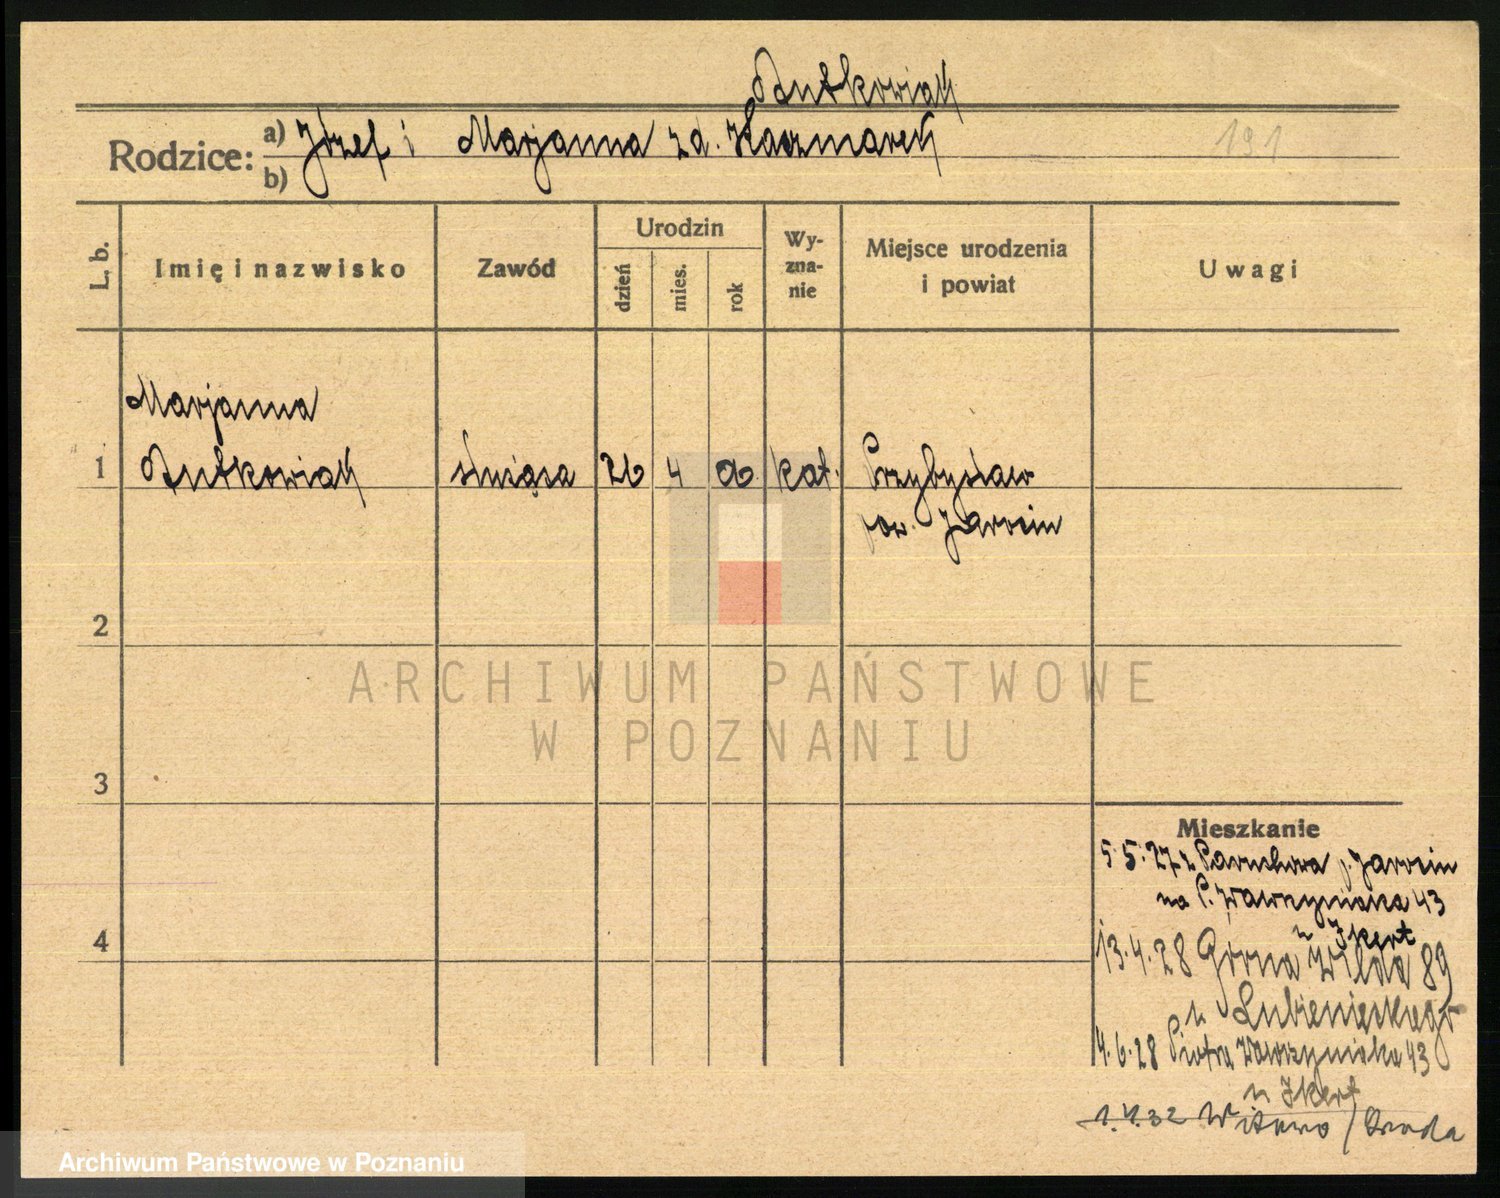 Butkowiak
Rodzice: a) Józef i Marjanna zd. Kaczmarek
b)
191
L. b. Imię i nazwisko Zawód Urodzin dzień mies. rok Wy-zna-nie Miejsce urodzenia i powiat Uwagi
Marjanna
1 Butkowiak służąca 26 4 kat. Przybysław
pow. Jarocin
2
3
4
Mieszkanie
5.5.27 z Jarocin
na P. Wawrzyniaka 43
u Ikert
13.4.28 Górna Wilda 89
u Lubienieckiego
4.6.28 Piotra Wawrzyniaka 43
u Ikert
1.4.32 Witowo / Środa
ARCHIWUM PAŃSTWOWE
W POZNANIU
Archiwum Państwowe w Poznaniu